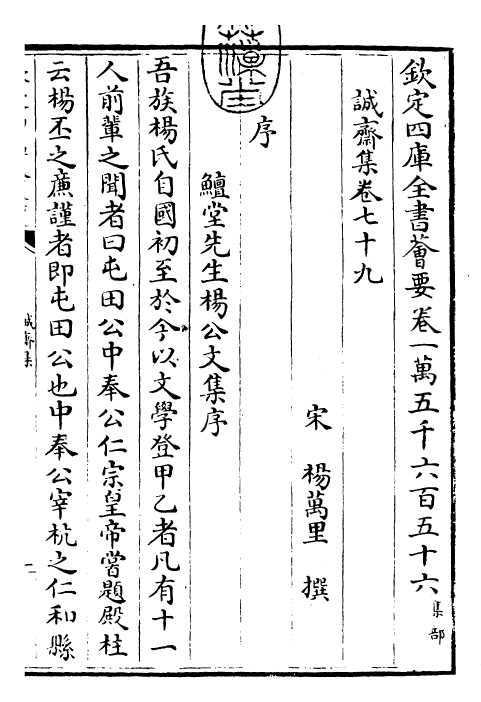 欽定四庫全書薈要卷一萬五千六百五十六集部
誠齋集卷七十九
宋 楊萬里 撰
序
鱣堂先生楊公文集序
吾族楊氏自國初至於今以文學登甲乙者凡有十一
人前輩之聞者曰屯田公中奉公仁宗皇帝嘗題殿柱
云楊丕之廉謹者即屯田公也中奉公宰杭之仁和縣
誠齋集